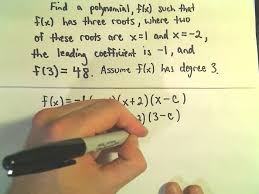 Find a polynomial, f(x) such that
f(x) has three roots, where two
of these roots are x=1 and x=-2,
the leading coefficient is -1, and
f(3) = 48. Assume f(x) has degree 3.
f(x)=-1( )(x+2)(x-c)
2)(3-c)